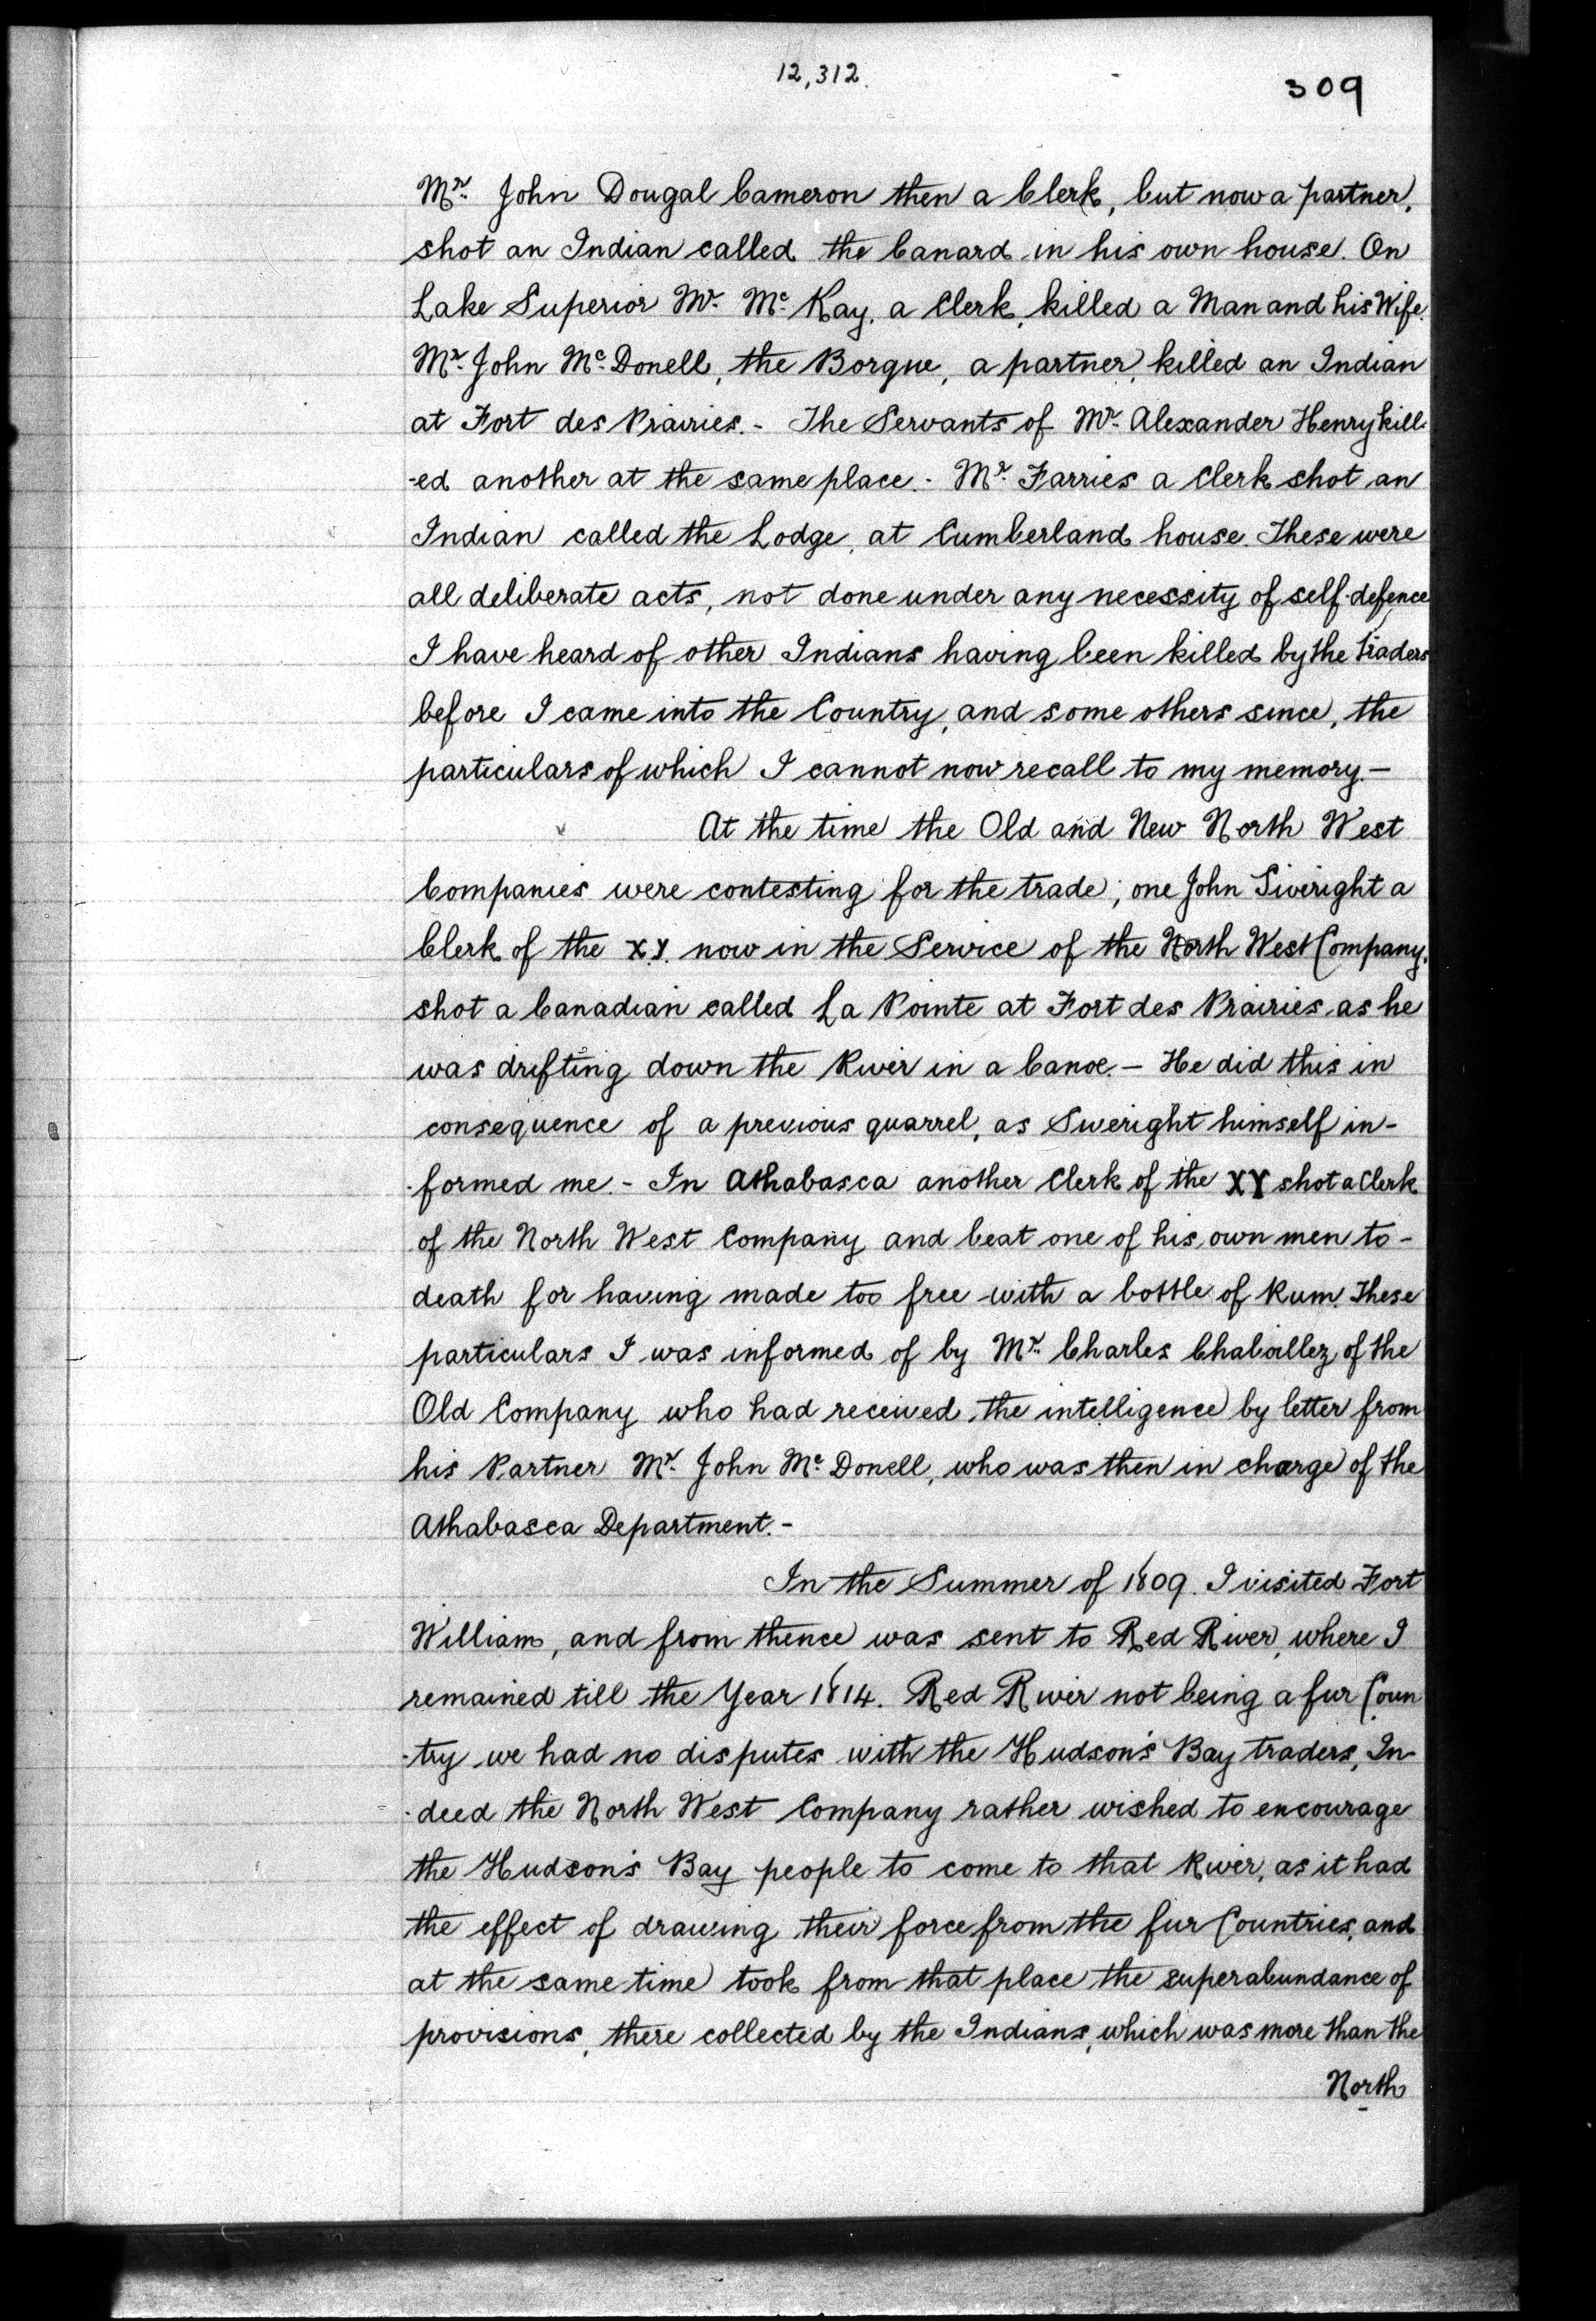 12,312.
309
Mr. John Dougal Cameron then a Clerk, but now a partner,
shot an Indian called the Canard in his own house. On
Lake Superior Mr. Mc. Kay, a Clerk, killed a Man and his Wife.
Mr. John Mc. Donell, the Borgue, a partner, killed an Indian
at Fort des Prairies.- The Servants of Mr. Alexander Henry kill-
-ed another at the same place.- Mr. Farries a Clerk shot an
Indian called the Lodge, at Cumberland house. These were
all deliberate acts, not done under any necessity of self-defence
I have heard of other Indians having been killed by the traders
before I came into the Country, and some others since, the
particulars of which I cannot now recall to my memory.-
At the time the Old and New North West
Companies were contesting for the trade; one John Siveright a
Clerk of the X.Y. now in the Service of the North West Company,
shot a Canadian called La Pointe at Fort des Prairies, as he
was drifting down the River in a Canoe.- He did this in
consequence of a previous quarrel, as Siveright himself in-
-formed me.- In Athabasca another Clerk of the XY shot a Clerk
of the North West Company, and beat one of his own men to-
death for having made too free with a bottle of Rum. These
particulars I was informed of by Mr. Charles Chaboillez of the
Old Company who had received the intelligence by letter from
his Partner Mr. John Mc. Donell, who was then in charge of the
Athabasca Department.-
In the Summer of 1809. I visited Fort
William, and from thence was sent to Red River, where I
remained till the Year 1814. Red River not being a fur Coun
-try we had no disputes with the Hudson's Bay traders, In-
-deed the North West Company rather wished to encourage
the Hudson's Bay people to come to that River, as it had
the effect of drawing their force from the fur Countries, and
at the same time took from that place the superabundance of
provisions, there collected by the Indians, which was more than the
North